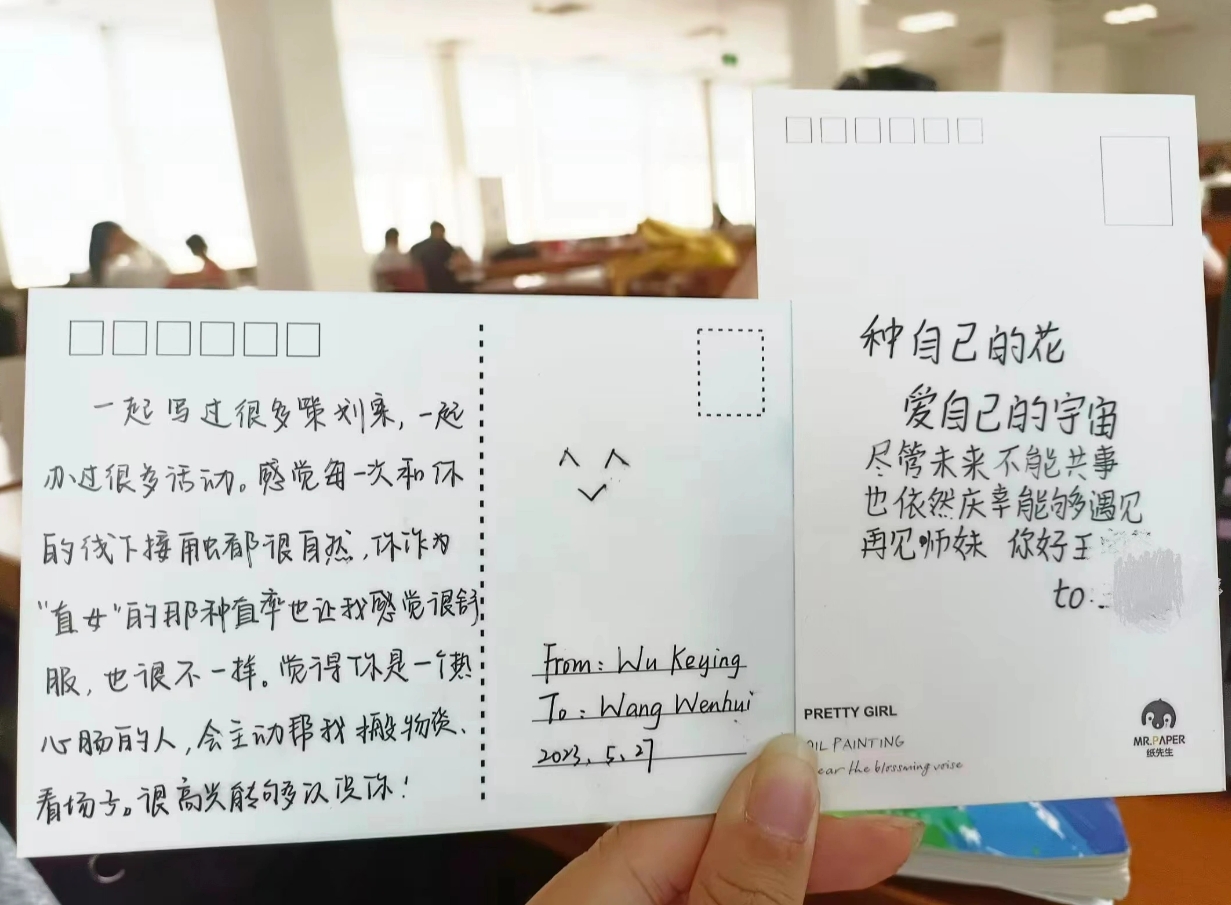 一起写过很多策划案，一起
办过很多活动。感觉每一次和你
的线下接触都很自然，你作为
“直女”的那种直率也让我感觉很舒
服，也很不一样。觉得你是一个热
心肠的人，会主动帮我搬物资、
看场子。很高兴能够多次没你！
From: Wu Keying
To: Wang Wenhui
2023.5.27
种自己的花
爱自己的宇宙
尽管未来不能共事
也依然庆幸能够遇见
再见师妹 你好王
to:
PRETTY GIRL
OIL PAINTING
ear the blossming voise
MR.PAPER
纸先生